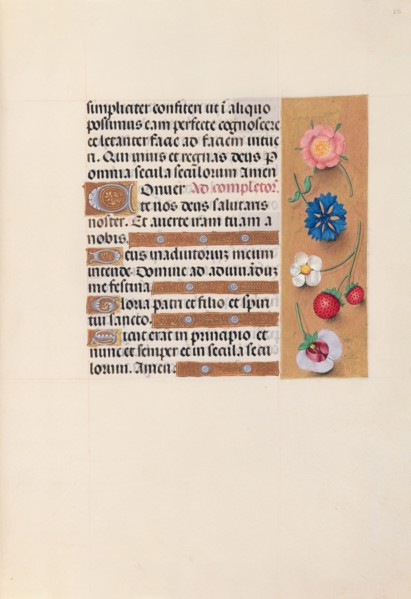 simpliciter confiteri ut i aliquo
possimus eam perfecte cognoscere
et letanter facie ad faciem intue
ri. Qui vivis et regnas deus P
omnia secula seculorum Amen
Conver Ad completor.
te nos deus salutaris
noster. Et averte iram tuam a
nobis.
Deus in adiutorium meum
intende. Domine ad adiuvanduz
me festina.
Gloria patri et filio et spiri
tui sancto.
Sicut erat in principio et
nunc et semper et in secula secu
lorum. Amen.